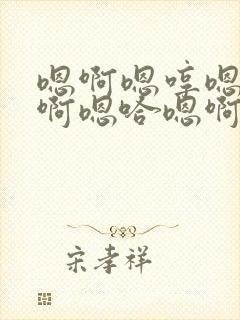 嗯啊嗯哼嗯
啊嗯哈嗯啊
宋孝祥